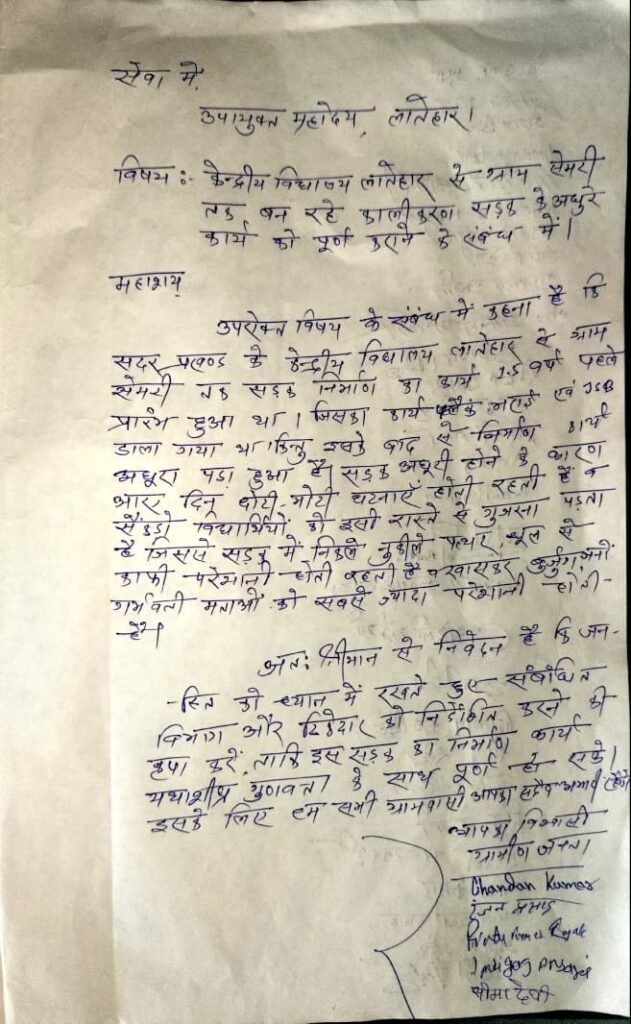 सेवा में,
उपायुक्त महोदय, लातेहार।
विषय :- केन्द्रीय विद्यालय लातेहार से ग्राम सेमरी
तक बन रहे कालीकरण सड़क के अधुरे
कार्य को पूर्ण कराने के संबंध में।
महाशय,
उपरोक्त विषय के संबंध में कहना है कि
सदर प्रखण्ड के केन्द्रीय विद्यालय लातेहार से ग्राम
सेमरी तक सड़क निर्माण का कार्य 1.5 वर्ष पहले
प्रारंभ हुआ था। जिसका कार्य एवं JSB
डाला गया था किन्तु इसके बाद से निर्माण कार्य
अधूरा पड़ा हुआ है। सड़क अधूरी होने के कारण
आए दिन छोटी-मोटी घटनाएँ होती रहती है व
सैंकड़ो विद्यार्थियों को इसी रास्ते से गुजरना पड़ता
है जिससे सड़क में निकले नुकीले पत्थर, धूल से
काफी परेशानी होती रहती है व खासकर बुर्जुग जनों
गर्भवती मताओं को सबसे ज्यादा परेशानी होती-
है।
अतः श्रीमान से निवेदन है कि जन-
-हित को ध्यान में रखते हुए संबंधित
विभाग और ठिकेदार को निर्देशित करने की
कृपा करें, ताकि इस सड़क का निर्माण कार्य
यथाशीघ्र गुणवता के साथ पूर्ण हो सके।
इसके लिए हम सभी ग्रामवासी आपका सदैव आभारी
आपका विश्वासी
ग्रामीण जनता
Chandan Kumar
रंजन प्रसाद
Kumar
सीमा देवी